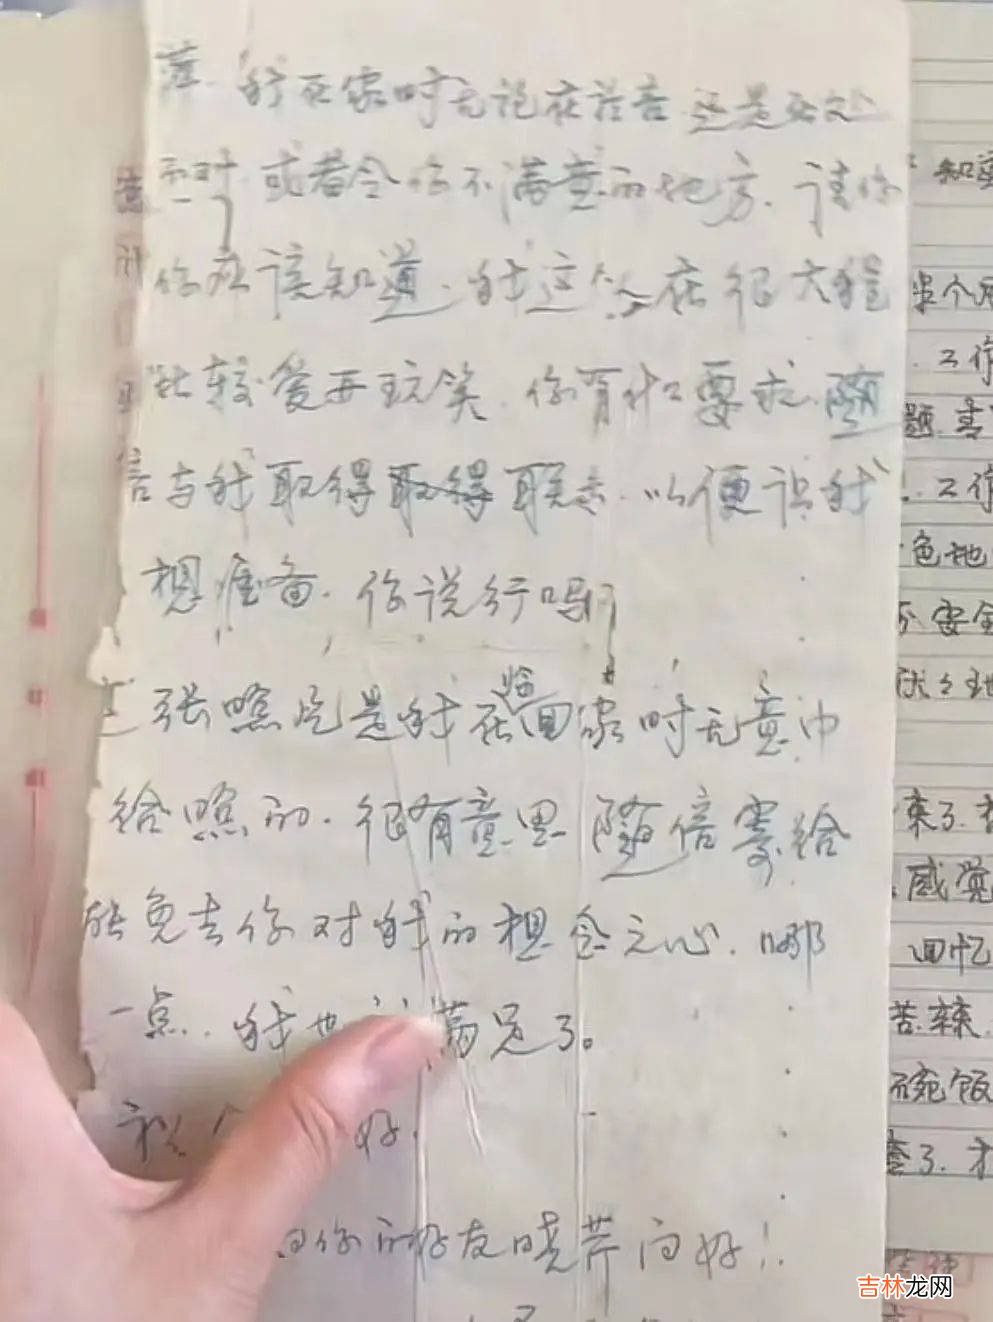 萍.我在家时无论在花言还是
或者令你不满意的地方.请你
你应该知道.我这个人在很大程
比较爱开玩笑.你有什么要求.随
信与我取得取得联系.以便让我
想准备.你说行吗
张照片是我在临回家时无意中
给照的.很有意思随信寄给
能免去你对我的想念之心.哪
一点.我也 满足了。
祝 好.
向你的好友晓芹问好!.
半个月
.工作
题.

.工作
色地
不安全

来了.
感觉
回忆
苦.辣.
碗饭
了.才
吉林龙网